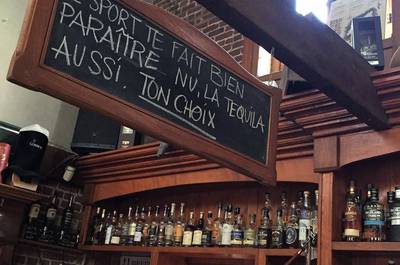 SPORT TE FAIT BIEN
PARAÎTRE NU. LA TEQUILA
AUSSI. TON CHOIX